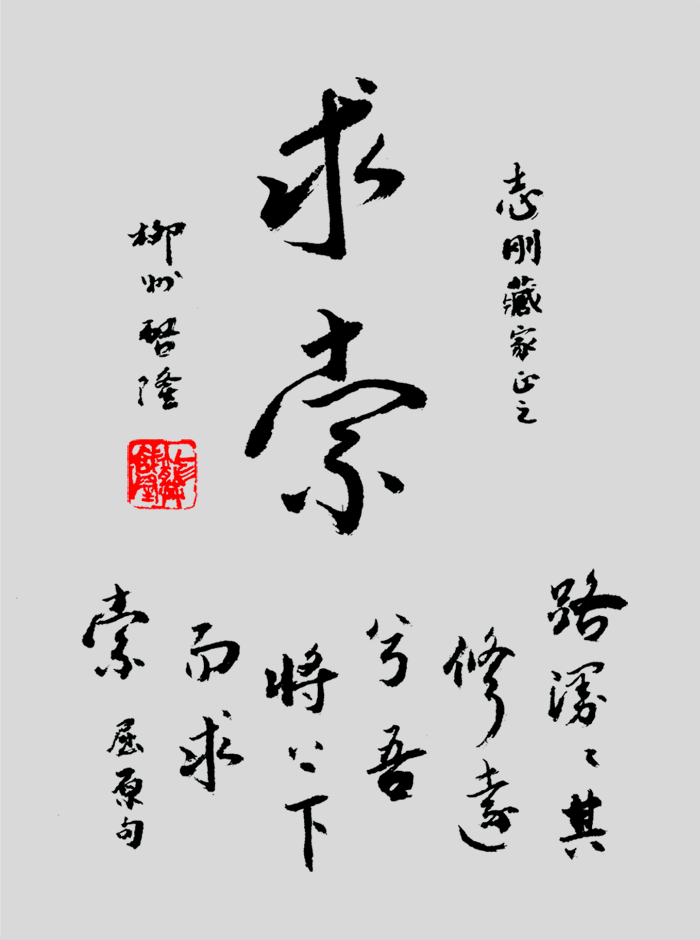 志刚藏家正之
求索
柳州啓隆
路漫々其
修遠
兮吾
將上下
而求
索 屈原句